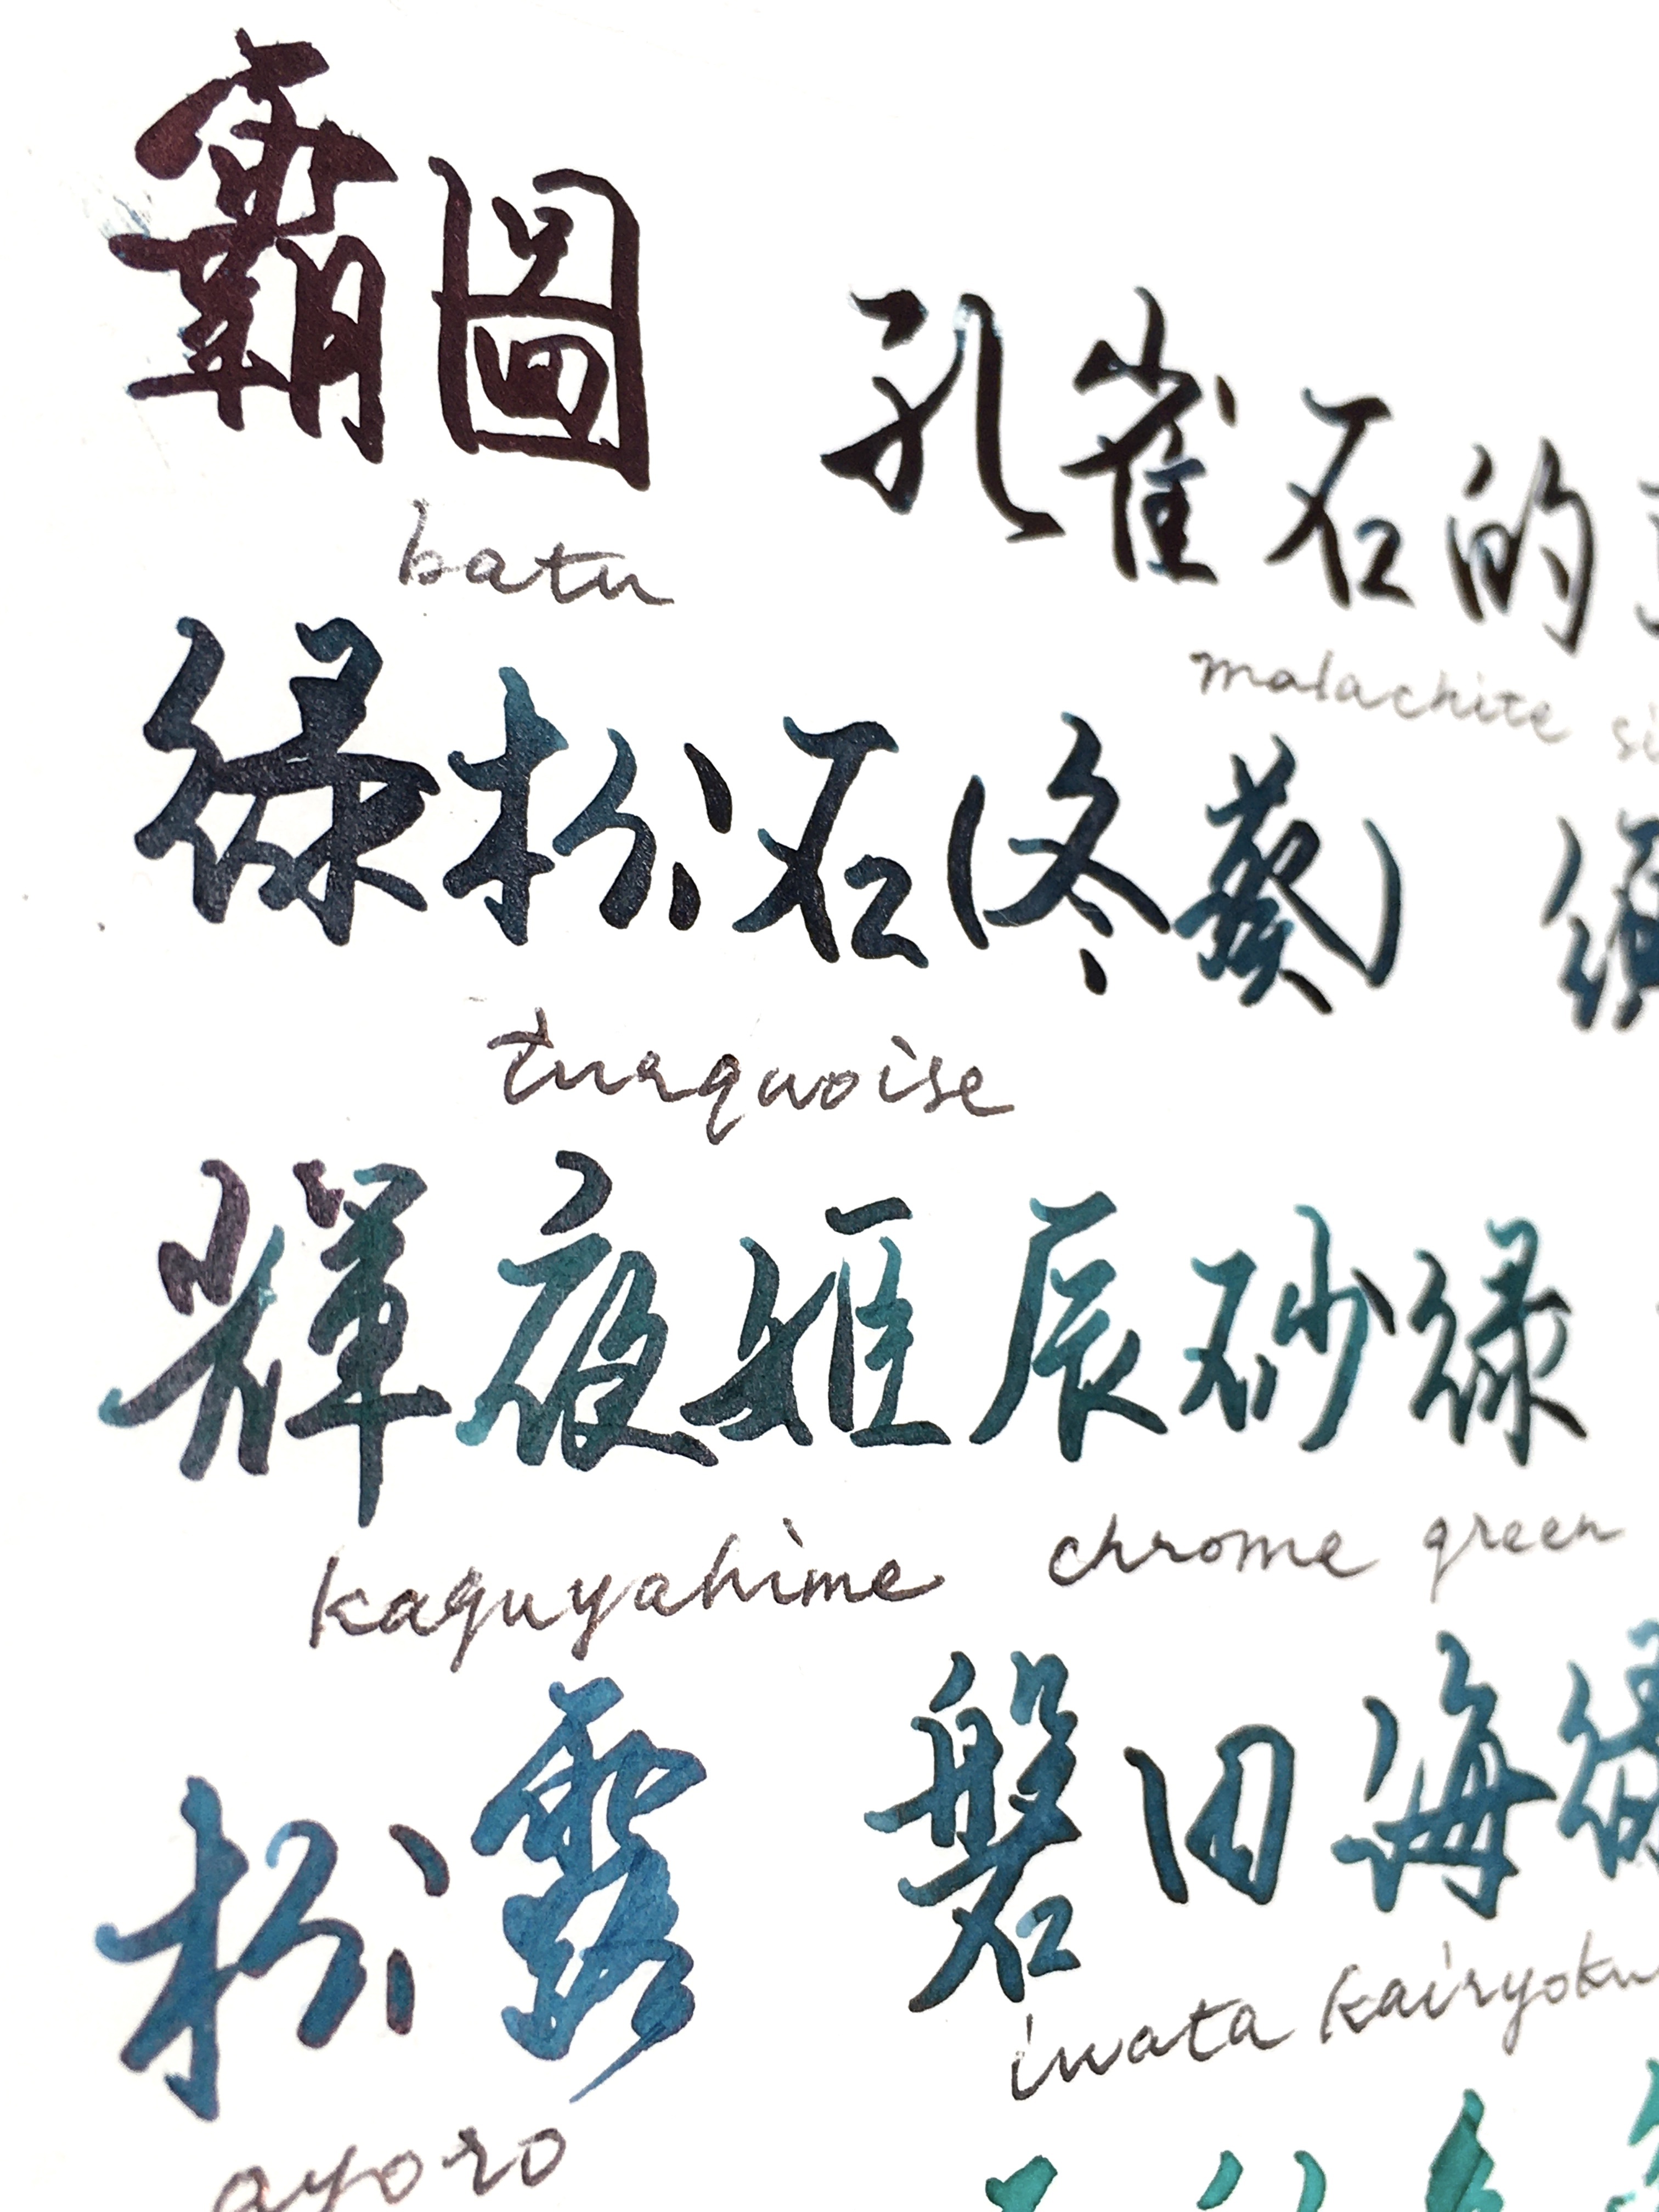 霸圖
孔雀石的
batu
malachite
綠松石(冬葵)
turquoise
輝夜姬 辰砂綠
kaguyahime chrome green
松露 磐田海綠
iwata kairyoku
ayoro